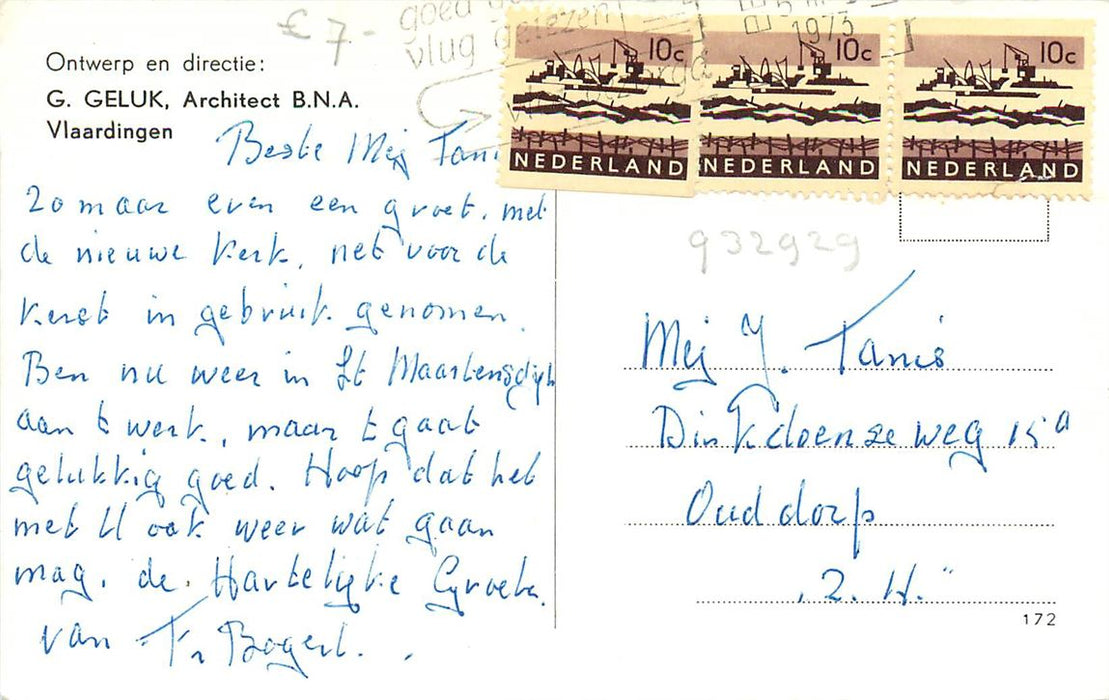 £ 7-
goed
vlug gelezen
1973
10c
10c
10c
NEDERLAND
NEDERLAND
NEDERLAND
Ontwerp en directie:
G. GELUK, Architect B.N.A.
Vlaardingen
Beste Mej Tanis
Zo maar even een groet. met
de nieuwe kerk, net voor de
Kerst in gebruik genomen.
Ben nu weer in St Maartensdijk
aan t werk, maar t gaat
gelukkig goed. Hoop dat het
met U ook weer wat gaan
mag. de Hartelijke Groeten.
van Fr Bogerd.
932929
Mej J. Tanis
Dirkdoenseweg 15a
Ouddorp
"Z.H."
172